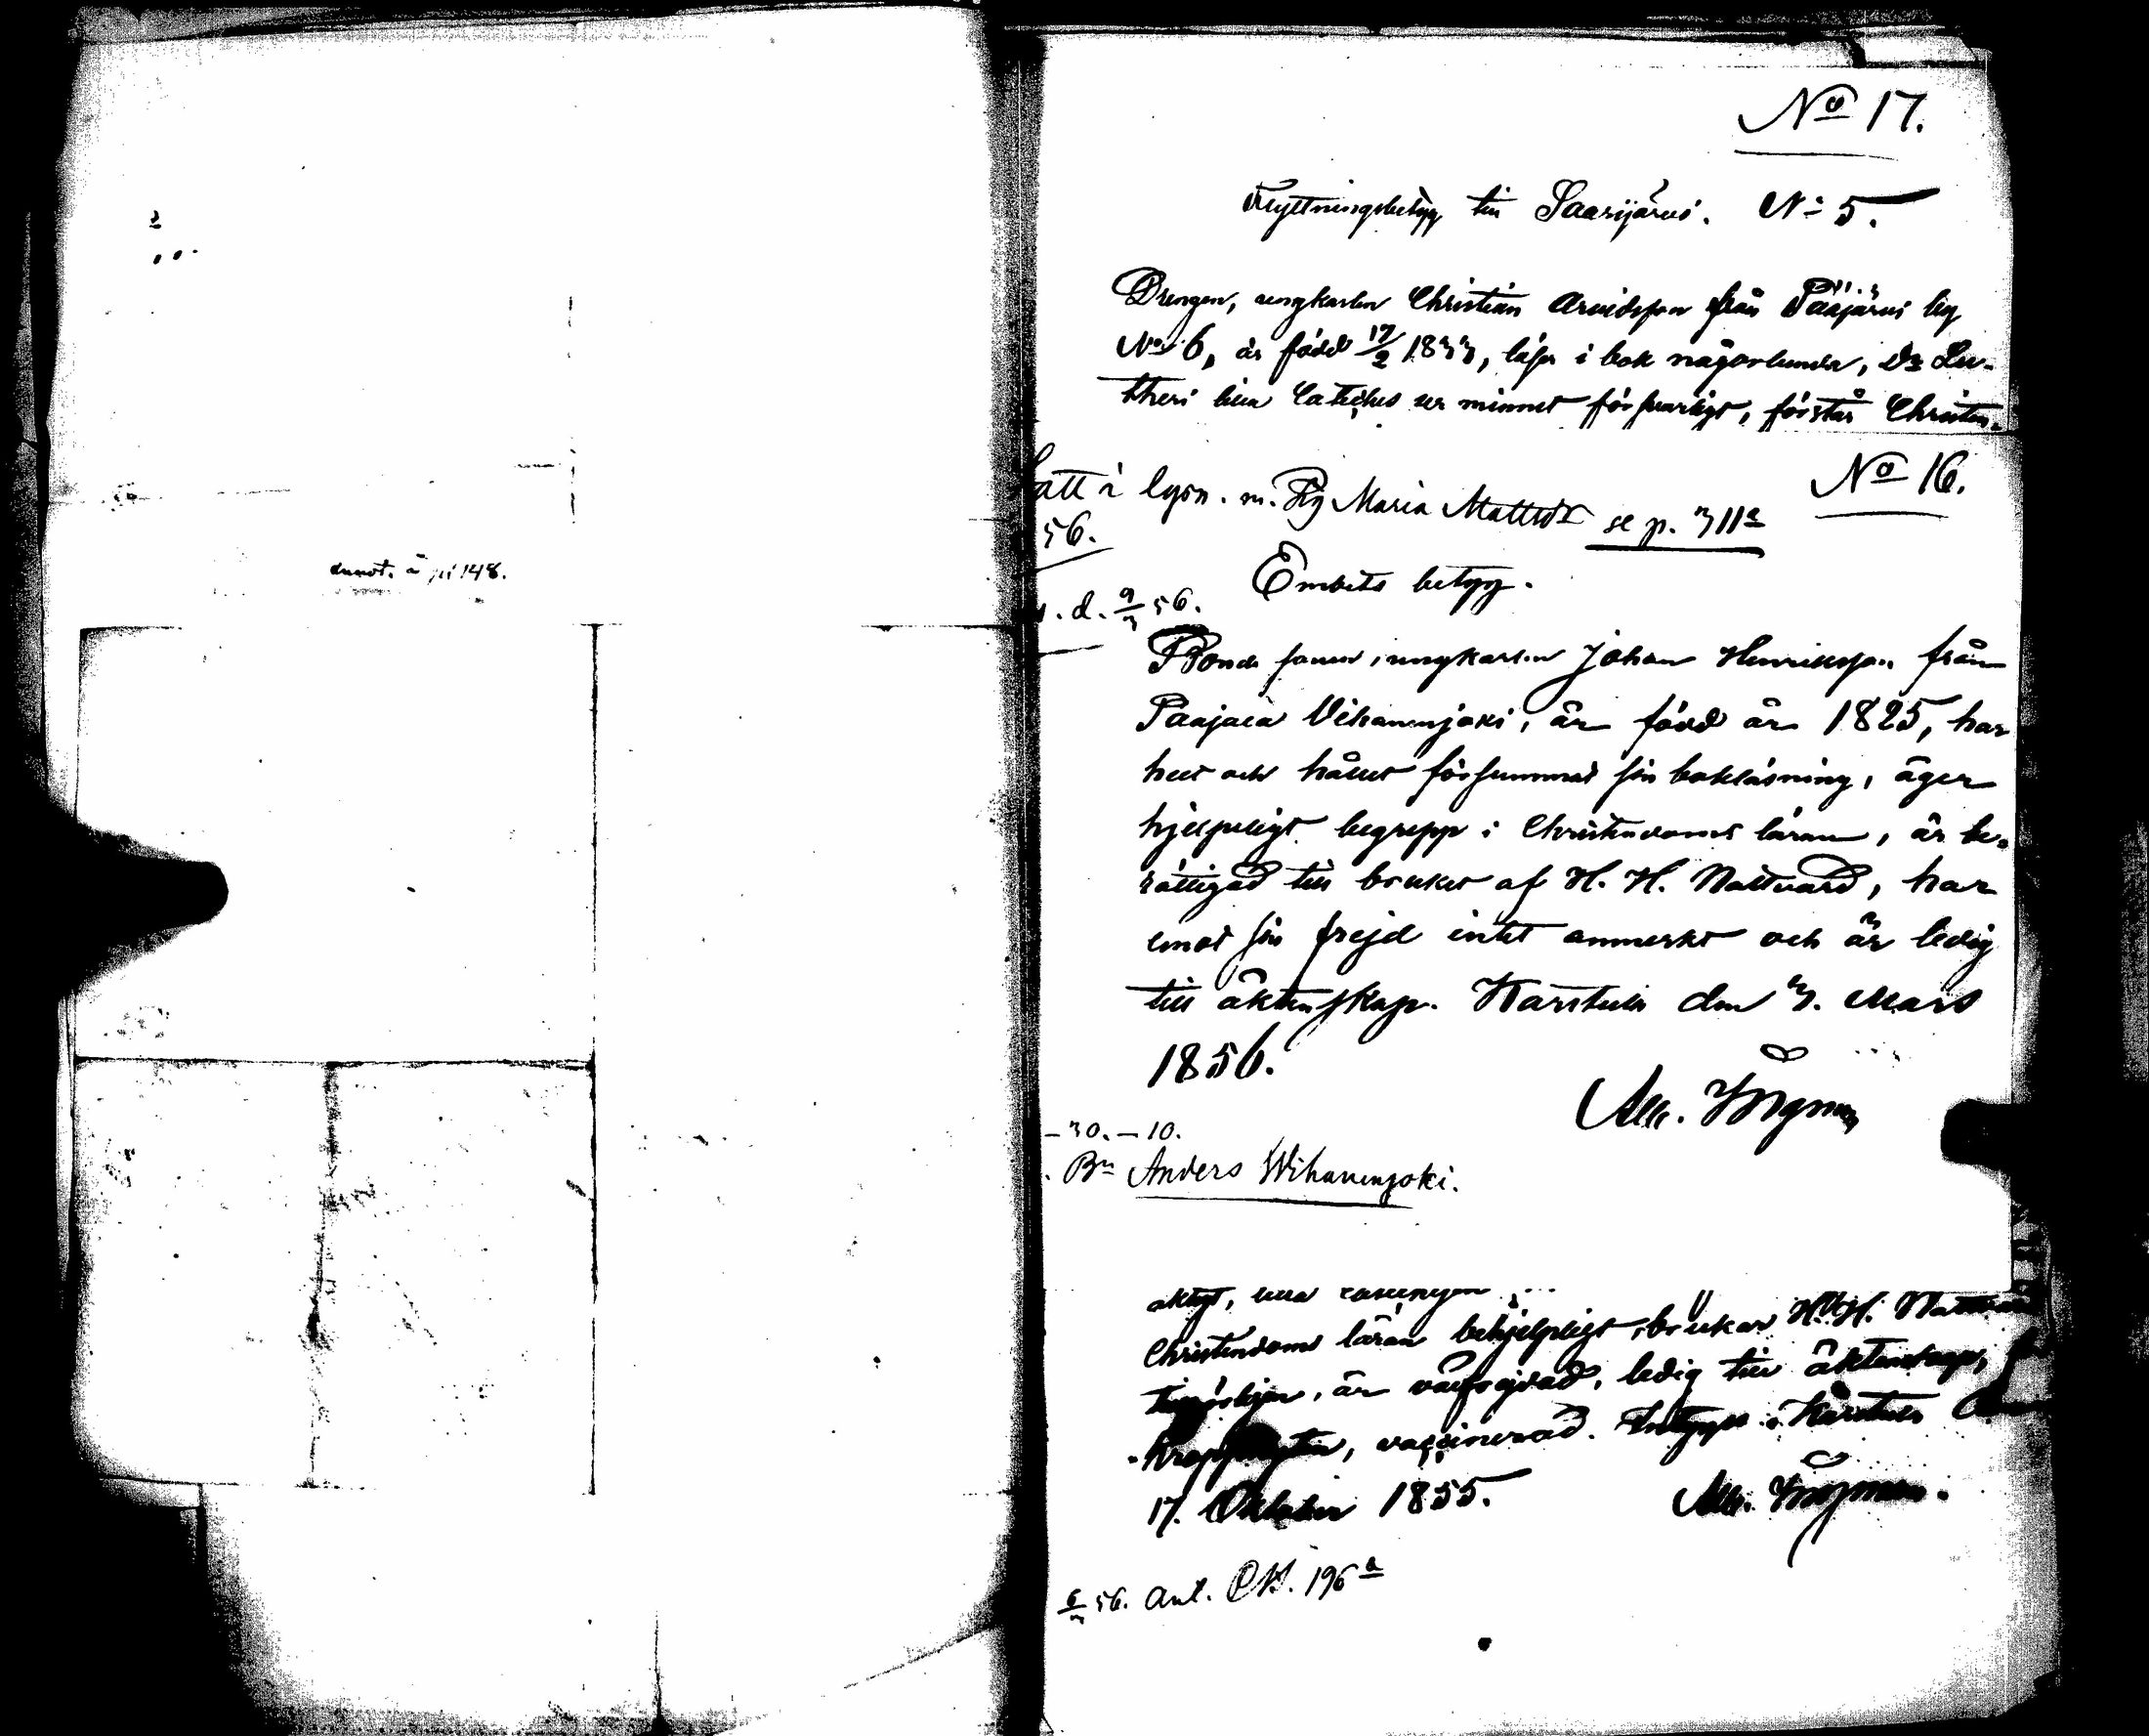 annot. å pa 148.
No 17.
Flyttningsbetyg till Saarijärvi. No 5.
Drengen, ungkarlen Christian Arvidsson från Pääjärvi by
No 6, är född 17/2 1833, läser i bok någorlunda, Dr Lu-
theri lilla Cateches ur minnet försvarligt, förstår Christen-
No 16.
satt i lysn. m. Pig Maria Mattsdr se p. 311a
56.
d. 9/3 56.
Embets betyg.
Bonde sonen, ungkarlen Johan Henriksson från
Paajala Vihanenjoki, är född år 1825, har
helt och hållet försummat sin bokläsning, äger
hjelpeligt begrepp i Christendoms läran, är be-
rättigad till bruket af H. H. Nattvard, har
emot sin frejd intet anmerkt och är ledig
till äktenskap. Karstula den 3. Mars
1856.
Alx. Ingman
-30.-10.
Bn Anders Wihanenjoki.
aktigt, lilla
Christendoms läran behjelpligt, brukar H. H. Nattvard
är välfrejdad, ledig till äktenskap,
vaccinerad. Intygas i Karstula den
17. Oktober 1855.
Alx. Ingman.
6/3 56. Ant. CB. 196a